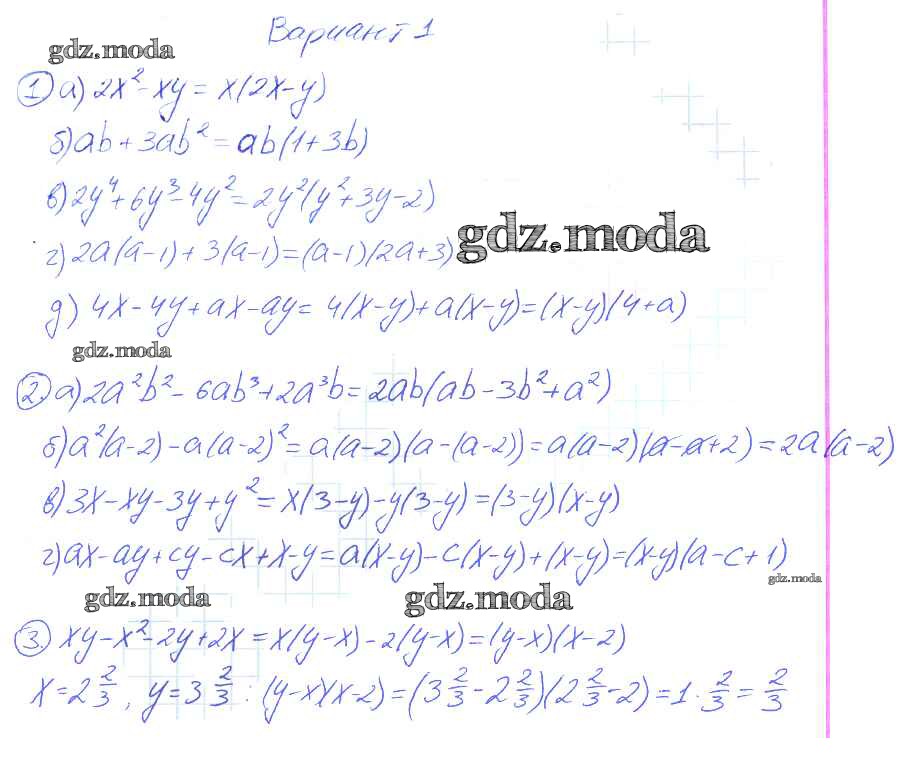 Вариант 1
gdz.moda
① а) 2x² - xy = x(2x-y)
б) ab + 3ab² = ab(1+3b)
в) 2y⁴ + 6y³ - 4y² = 2y²(y² + 3y - 2)
г) 2a(a-1) + 3(a-1) = (a-1)(2a+3)
gdz.moda
д) 4x - 4y + ax - ay = 4(x-y) + a(x-y) = (x-y)(4+a)
gdz.moda
② а) 2a²b² - 6ab³ + 2a³b = 2ab(ab - 3b² + a²)
б) a²(a-2) - a(a-2)² = a(a-2)(a-(a-2)) = a(a-2)(a-a+2) = 2a(a-2)
в) 3x - xy - 3y + y² = x(3-y) - y(3-y) = (3-y)(x-y)
г) ax - ay + cy - cx + x - y = a(x-y) - c(x-y) + (x-y) = (x-y)(a-c+1)
gdz.moda
gdz.moda gdz.moda
③ xy - x² - 2y + 2x = x(y-x) - 2(y-x) = (y-x)(x-2)
x = 2 2/3, y = 3 2/3 : (y-x)(x-2) = (3 2/3 - 2 2/3)(2 2/3 - 2) = 1 · 2/3 = 2/3